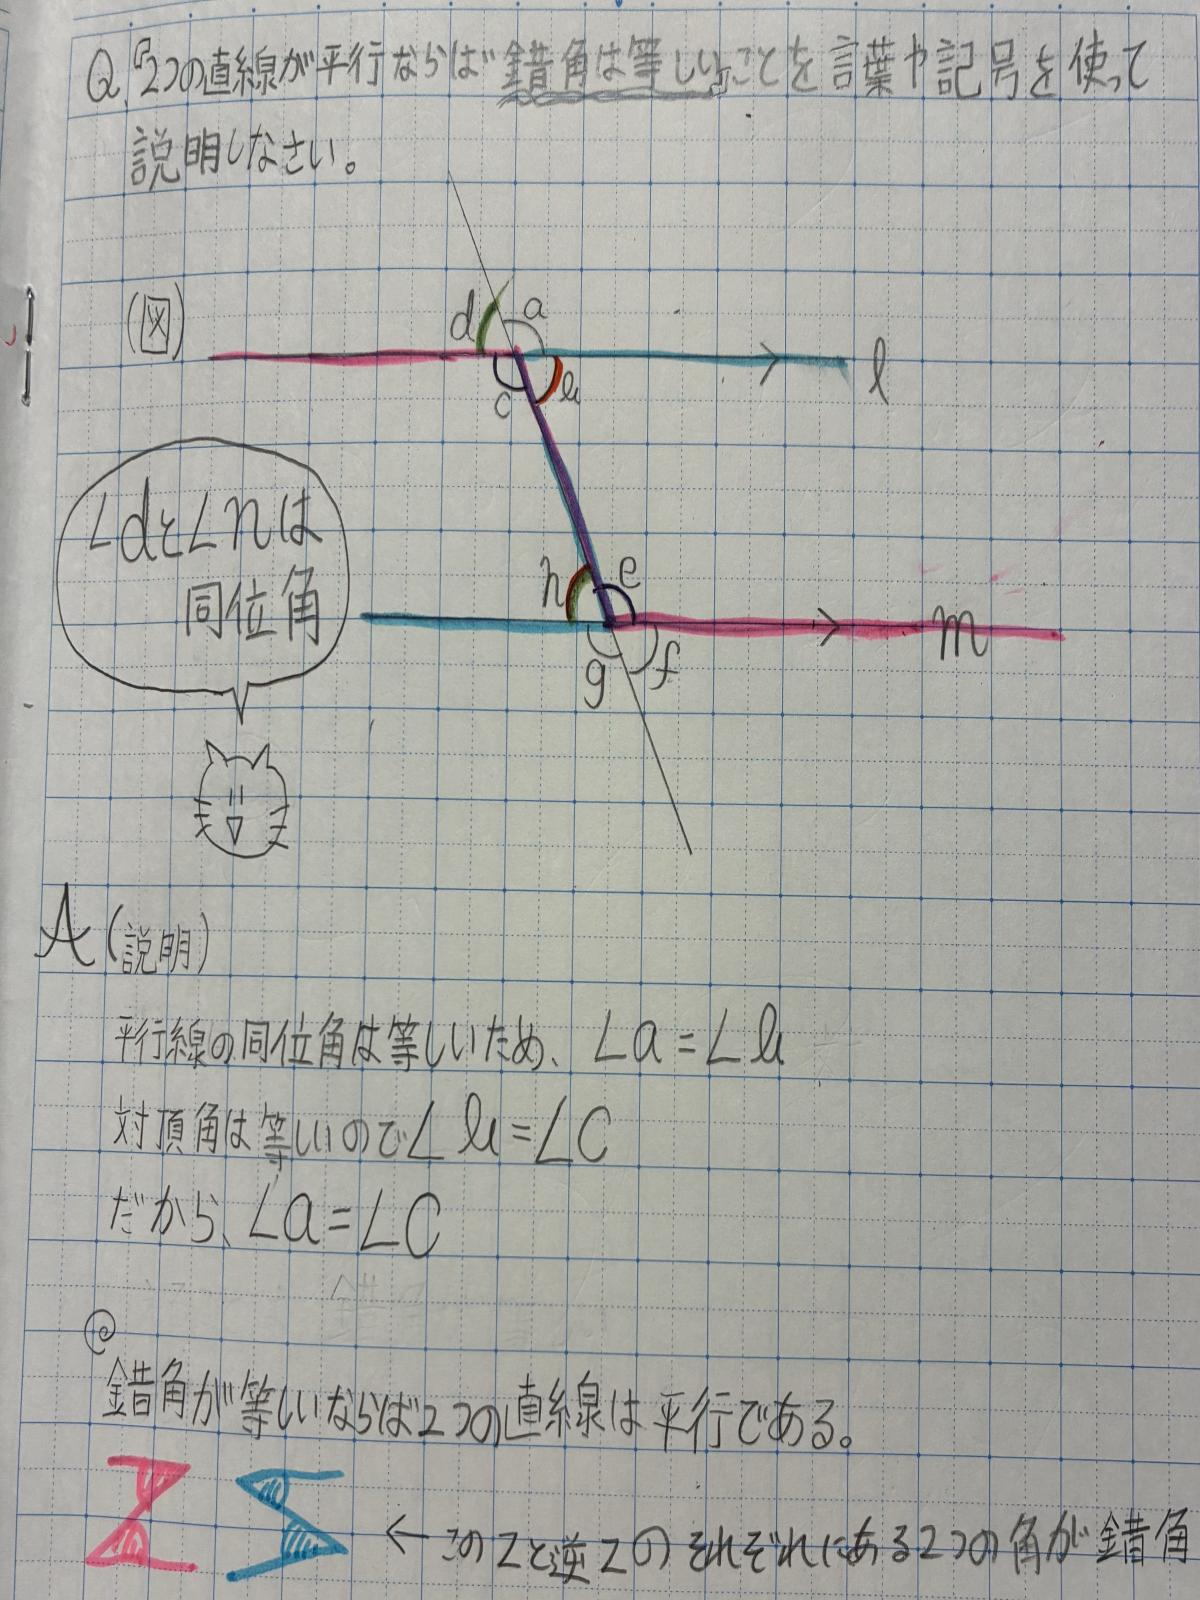 Q.『2つの直線が平行ならば錯角は等しい』ことを言葉や記号を使って
説明しなさい。
(図)
d a
l
c b
∠dと∠hは
同位角
h e
m
g f
A(説明)
平行線の同位角は等しいため、∠a=∠b
対頂角は等しいので∠b=∠c
だから、∠a=∠c
錯角が等しいならば2つの直線は平行である。
←このZと逆Zのそれぞれにある2つの角が錯角